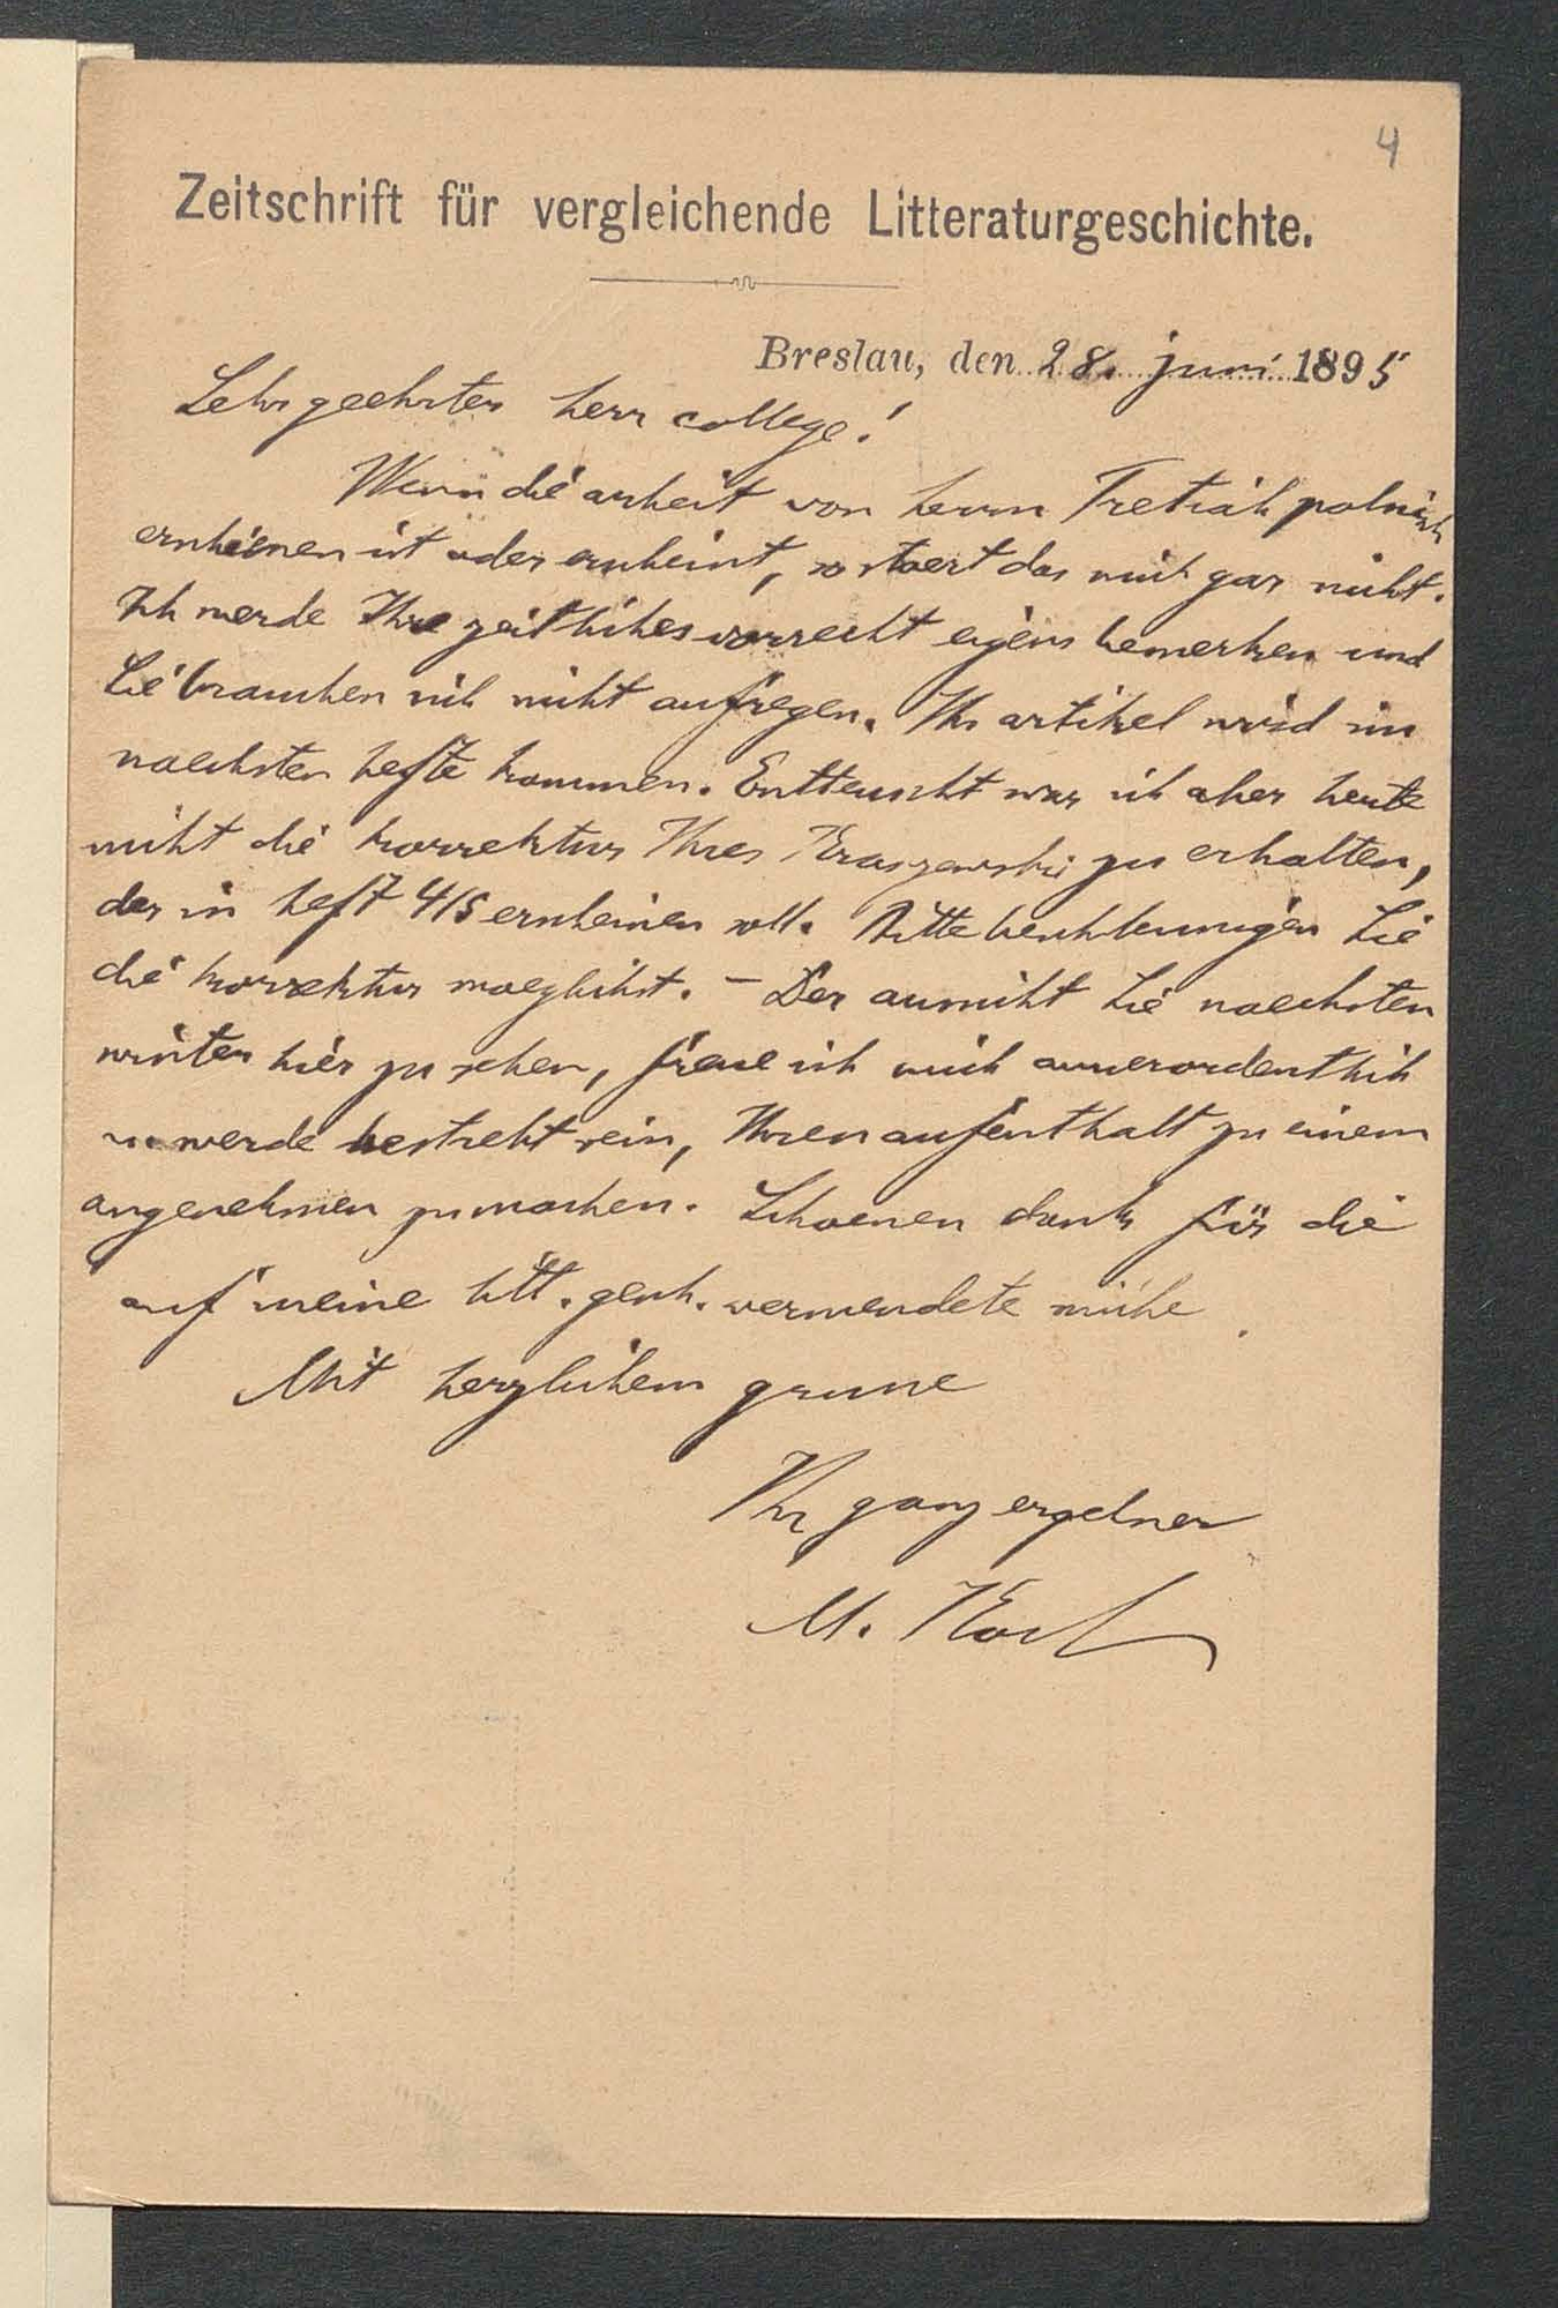 4
Zeitschrift für vergleichende Litteraturgeschichte.
Breslau, den 28. juni 1895
Sehr geehrter herr college!
Wenn die arbeit von herrn Tretiak polnisch
erschienen ist oder erscheint, so stoert das mich gar nicht.
Ich werde Ihre zeitliches vorrecht eigens bemerken und
Sie brauchen sich nicht aufregen. Ihr artikel wird im
naechsten hefte kommen. Entteuscht war ich aber heute
nicht die korrektur Ihres Kraszewski zu erhalten,
der in heft 4/5 erscheinen soll. Bitte beschleunigen Sie
die korrektur moeglichst. – Der aussicht Sie naechsten
winter hier zu sehen, freue ich mich ausserordentlich
u. werde bestrebt sein, Ihren aufenthalt zu einem
angenehmen zu machen. Schoenen dank für die
auf meine litt. gesch. verwendete mühe.
Mit herzlichem grusse
Ihr ganz ergebner
M. Koch